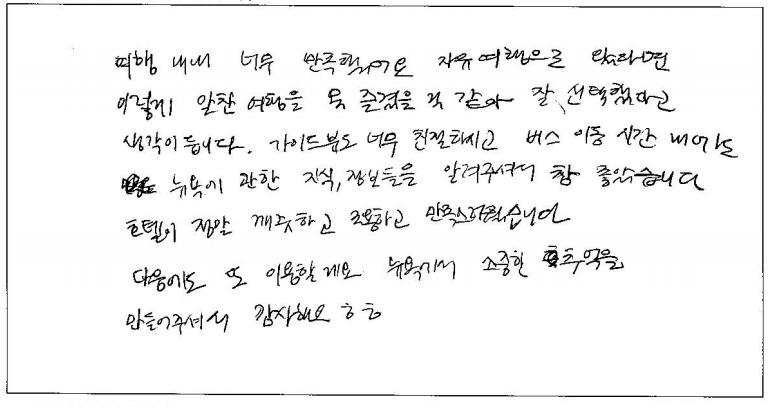 여행 내내 너무 만족했어요 자유여행으로 왔다면
이렇게 알찬 여행을 못 즐겼을 것 같아 잘 선택했다고
생각이 듭니다. 가이드분도 너무 친절하시고 버스 이동 시간 내에도
뉴욕에 관한 지식, 정보들을 알려주셔서 참 좋았습니다
호텔이 정말 깨끗하고 조용하고 만족스러웠습니다
다음에도 또 이용할게요 뉴욕에서 소중한 추억을
만들어주셔서 감사해요 ㅎㅎ